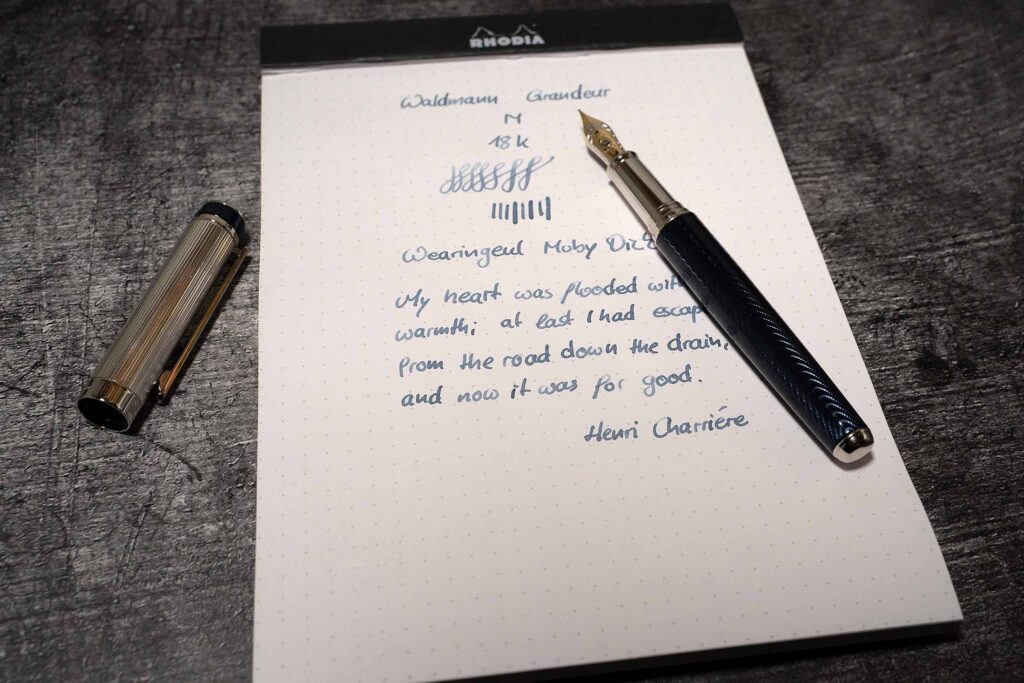 RHODIA
Waldmann Grandeur
M
18k
Wearingeul Moby
My heart was flooded with
warmth; at last I had
from the road down the drain,
and now it was for good.
Henri Charriére